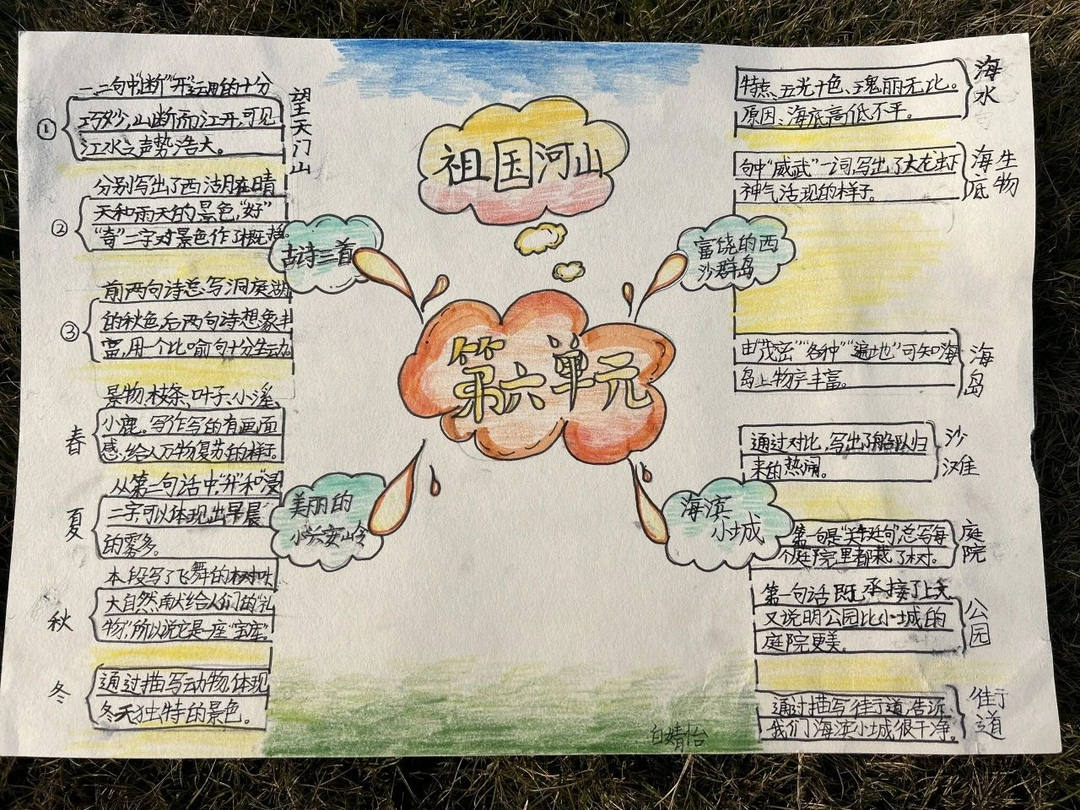 祖国河山
第六单元
古诗三首
望天门山
①
一、二句中"断""开"运用的十分
巧妙,山断而江开,可见
江水之声势浩大。
②
分别写出了西湖在晴
天和雨天的景色,"好"
"奇"二字对景色作了概括。
③
前两句诗总写洞庭湖
的秋色,后两句诗想象丰
富,用一个比喻句十分生动。
美丽的
小兴安岭
春
景物:枝条、叶子、小溪、
小鹿。写作写的有画面
感,给人万物复苏的样子。
夏
从第二句话中,"升"和"浸"
二字,可以体现出早晨
的雾多。
秋
本段写了飞舞的树叶
大自然献给人们的"礼
物",所以说它是一座"宝库"
冬
通过描写动物体现
冬天独特的景色。
富饶的西
沙群岛
海水
特点:五光十色、瑰丽无比。
原因:海底高低不平。
海底生物
句中"威武"一词,写出了大龙虾
神气活现的样子。
海岛
由"茂密""各种""遍地"可知海
岛上物产丰富。
海滨
小城
沙滩
通过对比,写出了船队归
来的热闹。
庭院
第一句是"关键句"总写每
个庭院里都栽了树。
公园
第一句话既承接了上文
又说明公园比小城的
庭院更美。
街道
通过描写街道,告诉
我们海滨小城很干净。
白婧怡